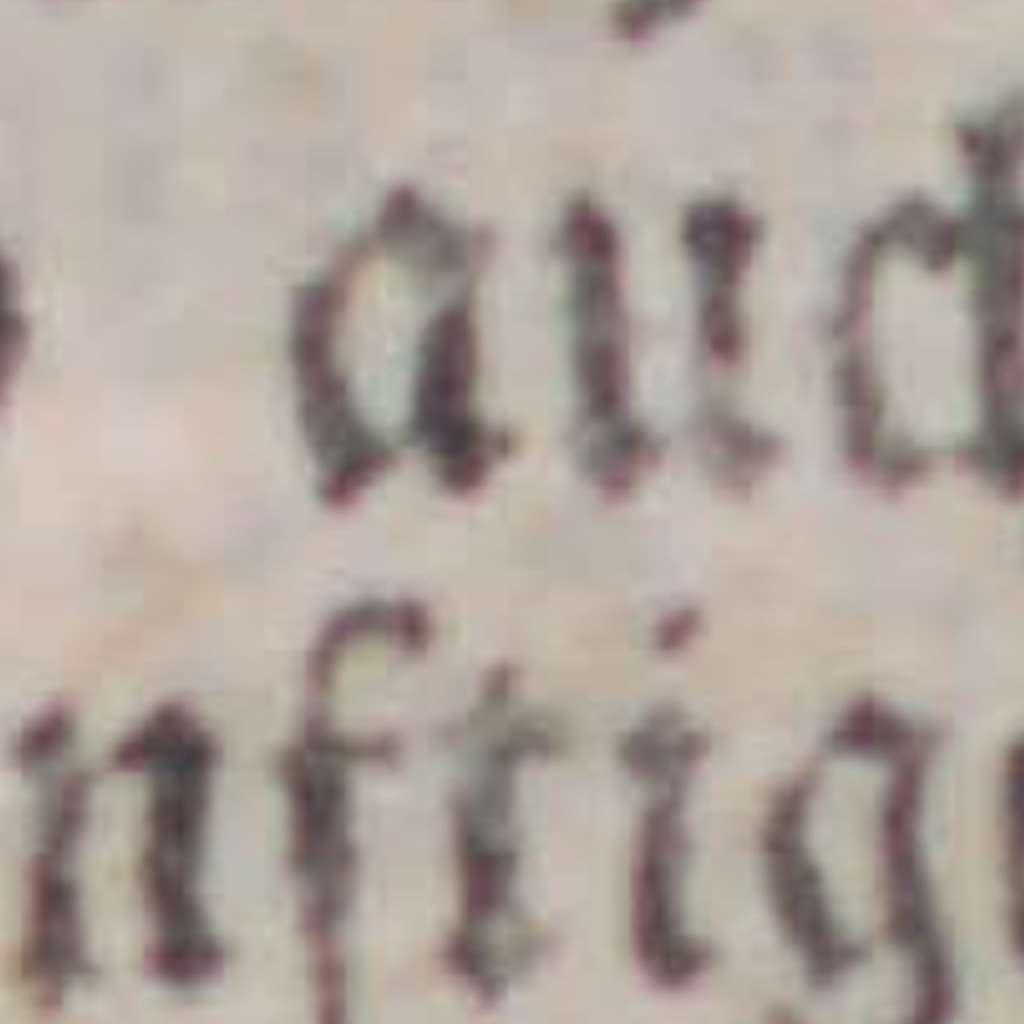 aud
nftig